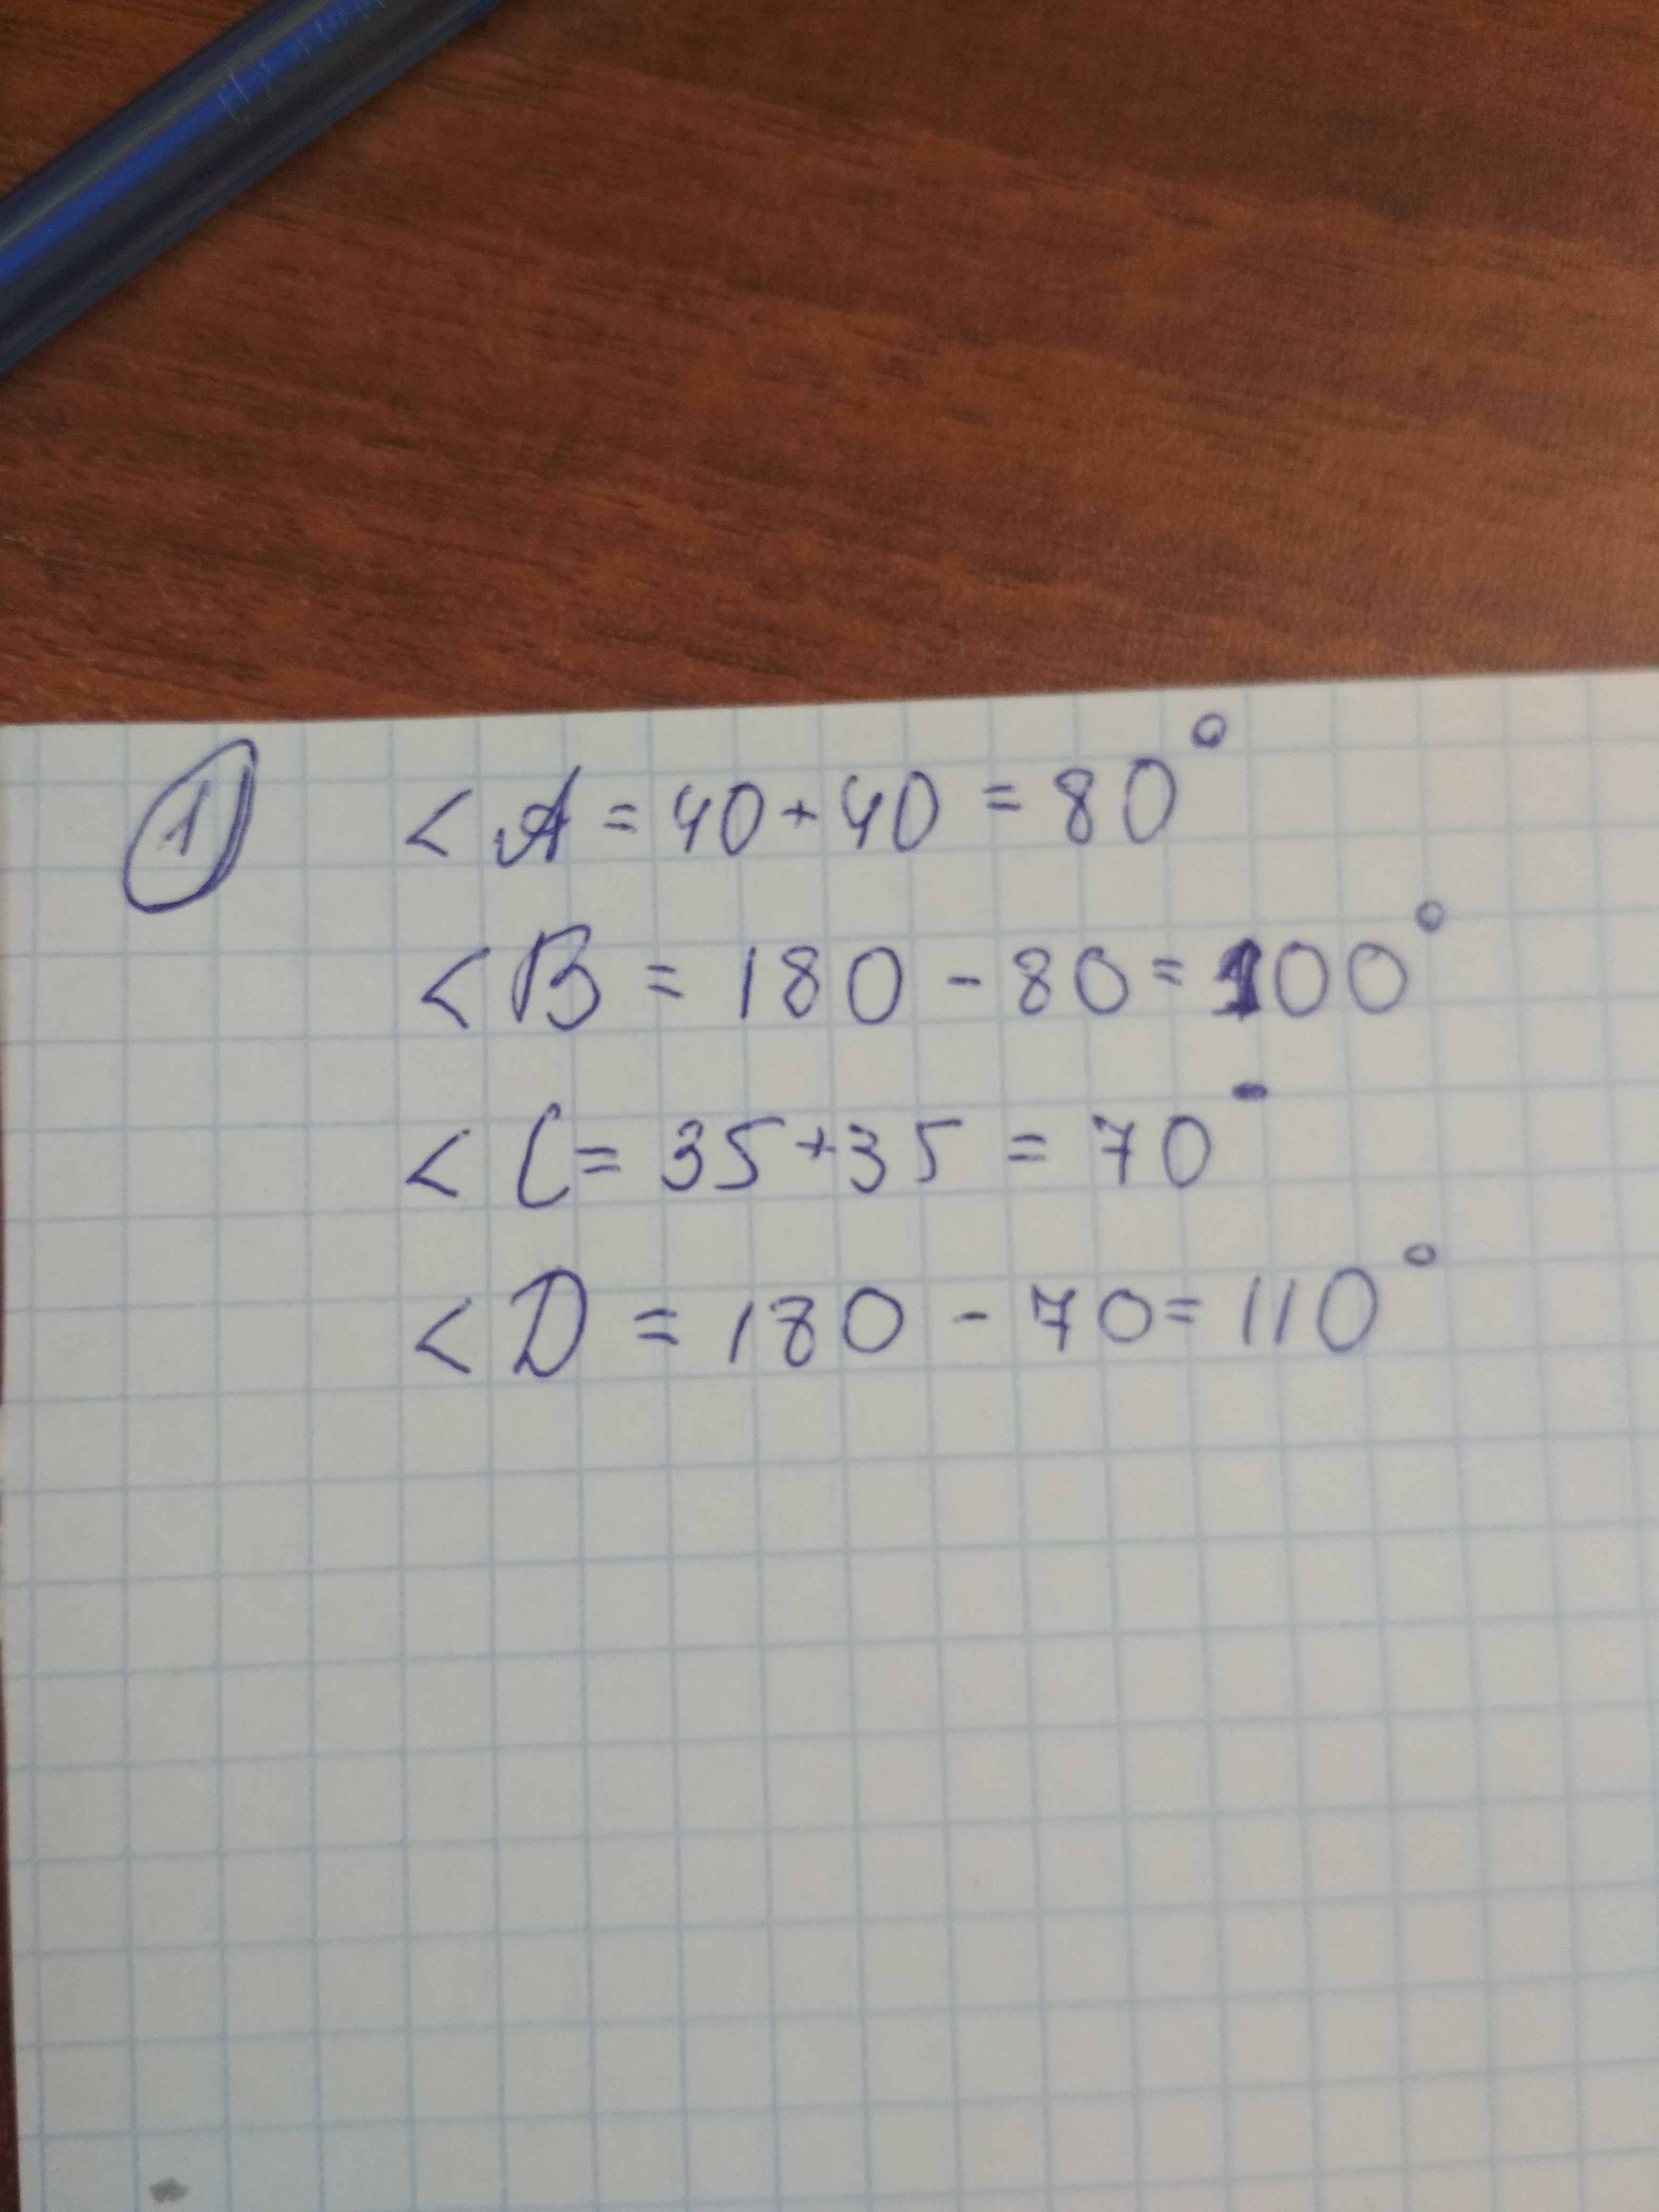 1 < A = 40 + 40 = 80°
< B = 180 - 80 = 100°
< C = 35 + 35 = 70°
< D = 180 - 70 = 110°